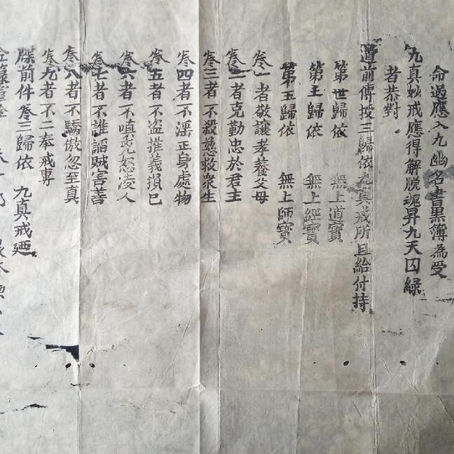 命過應入九幽名書黑簿為受
九真妙戒應得解脫魂昇九天囚緑
者恭對
道前傳授三歸依九真戒所且給付持
第世歸依 無上道寶
第土歸依 無上經寶
第五歸依 無上師寶
弟一者敬讓孝養父母
弟二者克勤忠於君主
弟三者不殺慈救衆生
弟四者不淫正身處物
弟五者不盜推義損己
弟六者不嗔兇怒凌人
弟七者不詐謟賊害善
弟八者不驕傲忽至真
弟九者不二奉戒專
牒前件弟三歸依九真戒廼